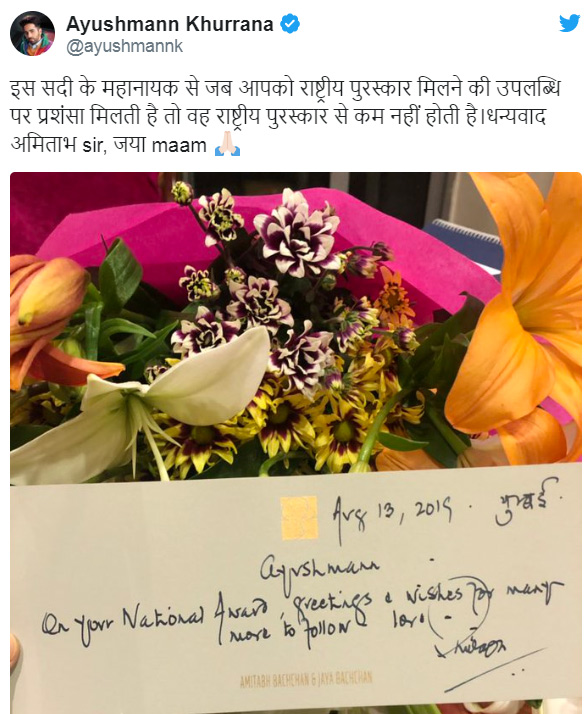 Ayushmann Khurrana
@ayushmannk
इस सदी के महानायक से जब आपको राष्ट्रीय पुरस्कार मिलने की उपलब्धि
पर प्रशंसा मिलती है तो वह राष्ट्रीय पुरस्कार से कम नहीं होती है।धन्यवाद
अमिताभ sir, जया maam 🙏🏻
Aug 13, 2019. मुम्बई.
Ayushmann
On your National Award, greetings & wishes for many
more to follow love
AMITABH BACHCHAN & JAYA BACHCHAN